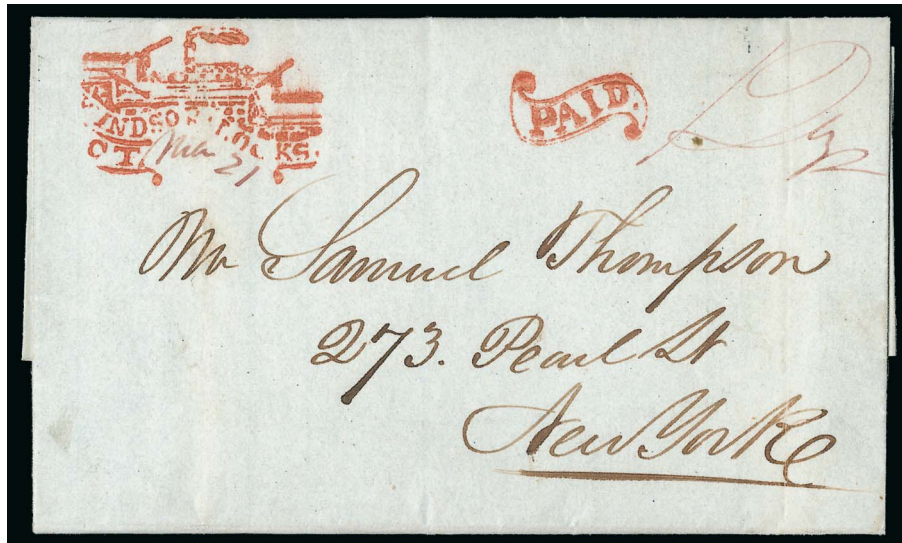 WINDSOR LOCKS.
CT.
Mar
21
PAID.
Mr Samuel Thompson
273. Pearl St
New York